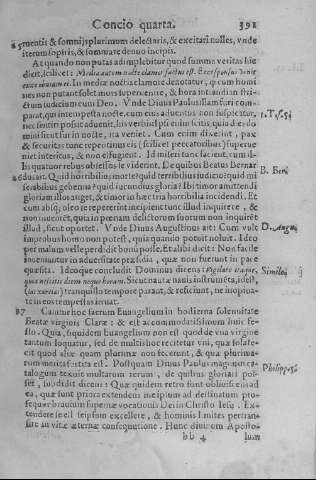 Concio quarta. 391
gmentis & somnijs plurimum delectaris, & excitari nolles, vnde
iterum sopiris, & somniare denuo incipis.
At quando non putas adimplebitur quod summa veritas hîc
dicit, scilicet: Media autem nocte clamor factus est. Ecce sponsus venit
exite obuiam ei. In mediæ noctis clamore denotatur, quod cum homi
nes non putant solet mors superuenire, & hora intrandi in stri-
ctum iudicium cum Deo. Vnde Diuus Paulus illam furi com-
parat, qui in tempesta nocte, cum eius aduentus non suspicatur,
nec sentiri possit adueniet, his verbis: Ipsi enim scitis, quia dies do 1. Tes. 5.
mini sicut fur in nocte, ita veniet. Cum enim dixerint, pax
& securitas tunc repentinus eis (scilicet peccatoribus) superue
niet interitus, & non effugient.
In quatuor rebus obsessos le viderint. De quibus Beatus Bernar B. Bern.
dus ait. Quid horribilius morte? quid terribilius iudicio? quid mi
serabilius gehenna? quid iucundius gloria? Ibi timor amittendi
gloriam illos anget, & timor in hæc tria horribilia incidendi. Et
cum absq; oleo te repererint incipient tunc illud inquirere, &
non inuenient, quia in pœnam delictorum suorum non inquirẽt
illud, sicut oportet. Vnde Diuus Augustinus ait: Cum vult D. Augu.
improbus homo non potest, quia quando potuit noluit. Ideo
per malum velle perdidit bonũ posse. Et alibi dicit: Non facile
inueniuntur in aduersitate præsidia, quæ non fuerunt in pace
quæsita. Ideoque concludit Dominus dicens: Vigilate itaque, Simile.
quia nescitis diem neque horam. Sicut nautæ nauis instrumẽta, idest,
tranquillo tempore parant, & reficiunt, ne inopina-
te in eos tempestas irruat.
87 Canitur hoc sacrum Euangelium in hodierna solennitate
Beatæ virginis Claræ: & est accommodatissimum huic fe-
sto. Quia, siquidem Euangelium non est quod de vna virgine
tantum loquatur, sed de multis hoc recitetur vni, quia sola fe-
cit quod aliæ quam plurimæ non fecerunt, & quia plurima-
rum merita sortita est. Postquam Diuus Paulus magnum ca-
talogum texuit multarum rerum, de quibus gloriari pos- Philipp. 3.
set, subdidit dicens: Quæ quidem retro sunt obliuiscens ad
ea, quæ sunt priora extendens me ipsum ad destinatum pro-
sequor brauium supernæ vocationis Dei in Christo Iesu. Ex-
tendere se est seipsum excellere, & hominis limites pertran-
sire in vitæ æternæ consequutione. Hunc diuinum Aposto-
bb 4 lum